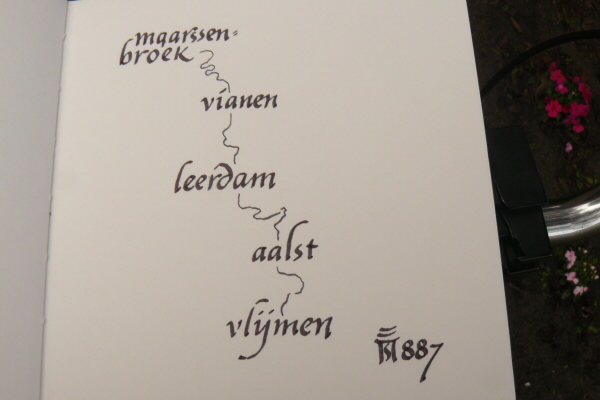 maarssen=
broek
vianen
leerdam
aalst
vlijmen
887